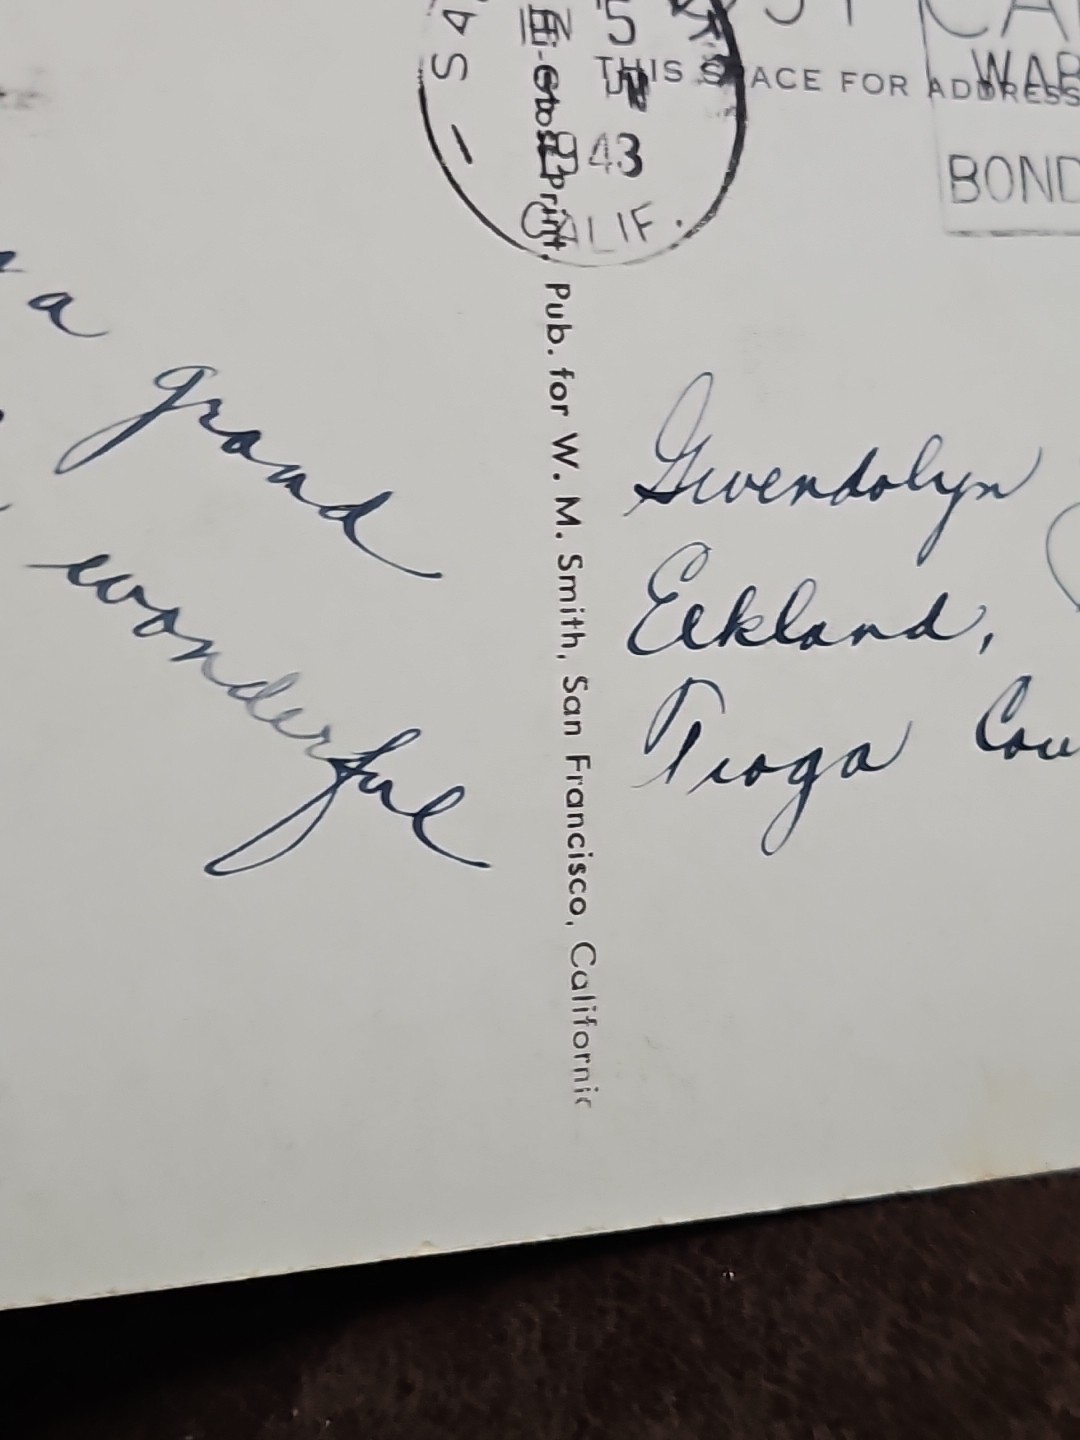 POST CA
THIS SPACE FOR ADDRESS
WAR
BOND
5
43
CALIF.
Pub. for W. M. Smith, San Francisco, California
a
grand
wonderful
Gwendolyn
Elkland,
Tioga Cou